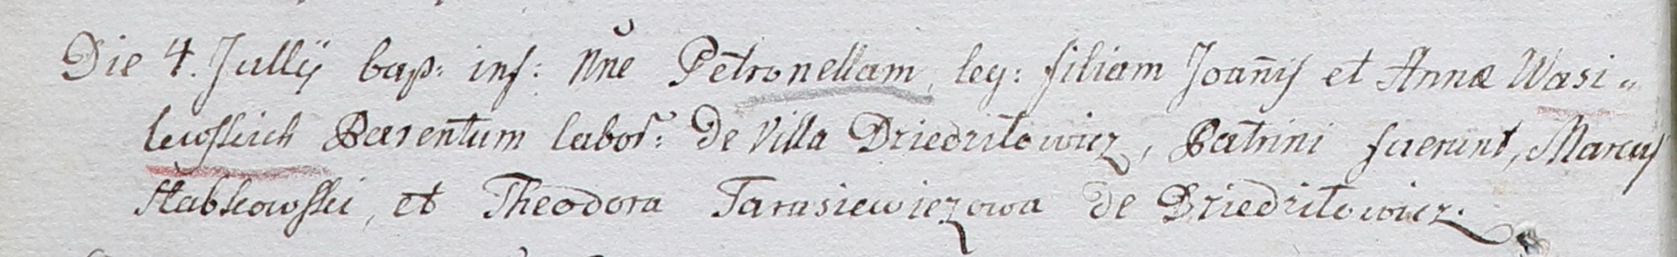 Die 4. Jullij bap: inf: Nne Petronellam, leg: filiam Joan̄is et Annæ Wasi„
lewskich Parentum labor: de Villa Dziedziłowicz, Patrini fuerunt, Marcus
et Theodora Tarasiewiczowa de Dziedziłowicz.